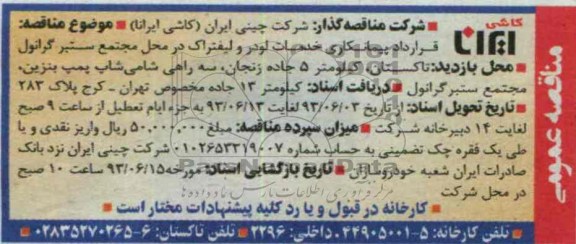 مناقصه عمومی
کاشی ایرانا
■ شرکت مناقصه گذار: شرکت چینی ایران (کاشی ایرانا) ■ موضوع مناقصه:
قرارداد پیمانکاری خدمات لودر و لیفتراک در محل مجتمع ستبر گرانول
■ محل بازدید: تاکستان، کیلومتر ۵ جاده زنجان، سه راهی شامی شاپ پمپ بنزین،
مجتمع ستبر گرانول ■ دریافت اسناد: کیلومتر ۱۳ جاده مخصوص تهران - کرج پلاک ۲۸۳
■ تاریخ تحویل اسناد: از تاریخ ۹۳/۰۶/۰۳ لغایت ۹۳/۰۶/۱۳ به جزء ایام تعطیل از ساعت ۹ صبح
لغایت ۱۴ دبیرخانه شرکت ■ میزان سپرده مناقصه: مبلغ ۵۰,۰۰۰,۰۰۰ ریال واریز نقدی و یا
طی یک فقره چک تضمینی به حساب شماره ۰۱۰۲۶۵۳۳۱۹۰۰۷ شرکت چینی ایران نزد بانک
صادرات ایران شعبه خودروسازان ■ تاریخ بازگشایی اسناد: مورخه ۹۳/۰۶/۱۵ ساعت ۱۰ صبح
در محل شرکت
■ کارخانه در قبول و یا رد کلیه پیشنهادات مختار است ■
■ تلفن کارخانه: ۵-۴۴۹۰۵۰۰۱ داخلی: ۲۲۹۶ ■ تلفن تاکستان: ۶-۰۲۸۳۵۲۷۰۲۶۵ ■